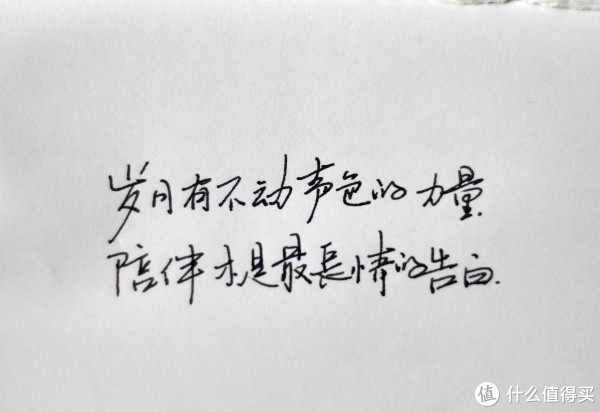 岁月有不动声色的力量.
陪伴才是最長情的告白.
值 什么值得买